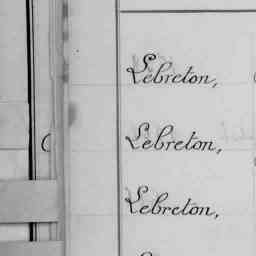 Lebreton,
Lebreton,
Lebreton,